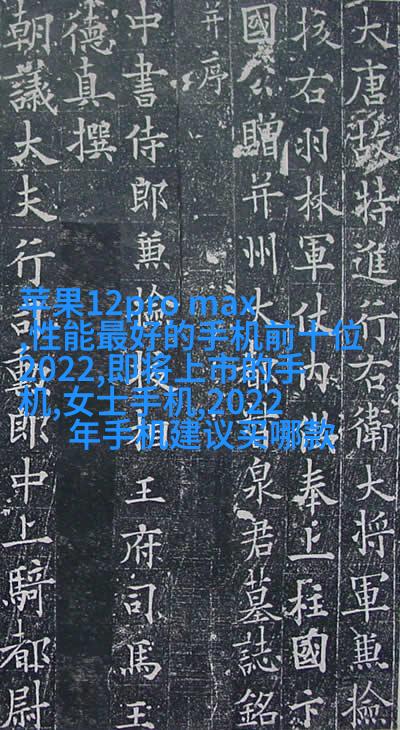 大唐故特進行右衛大將軍兼檢
校右羽林軍仗內供奉上柱國卞
國公贈并州大都督泉君墓誌銘
并序
中書侍郎兼檢校相王府司馬王
德真撰
朝議大夫行司勳郎中上騎都尉
苹果12pro max
,性能最好的手机前十位
2022,即将上市的手
机,女士手机,2022
年手机建议买哪款